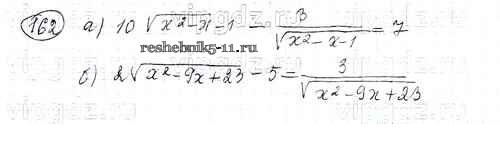 162 а) 10 √(x² - x - 1) - 3/√(x² - x - 1) = 7
reshebnik5-11.ru
б) 2√(x² - 9x + 23) - 5 = 3/√(x² - 9x + 23)